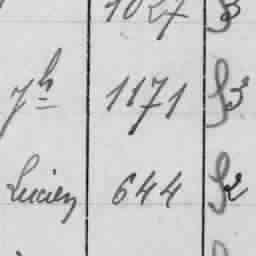 1027 3
Jh 1171 3
Lucien 644 2